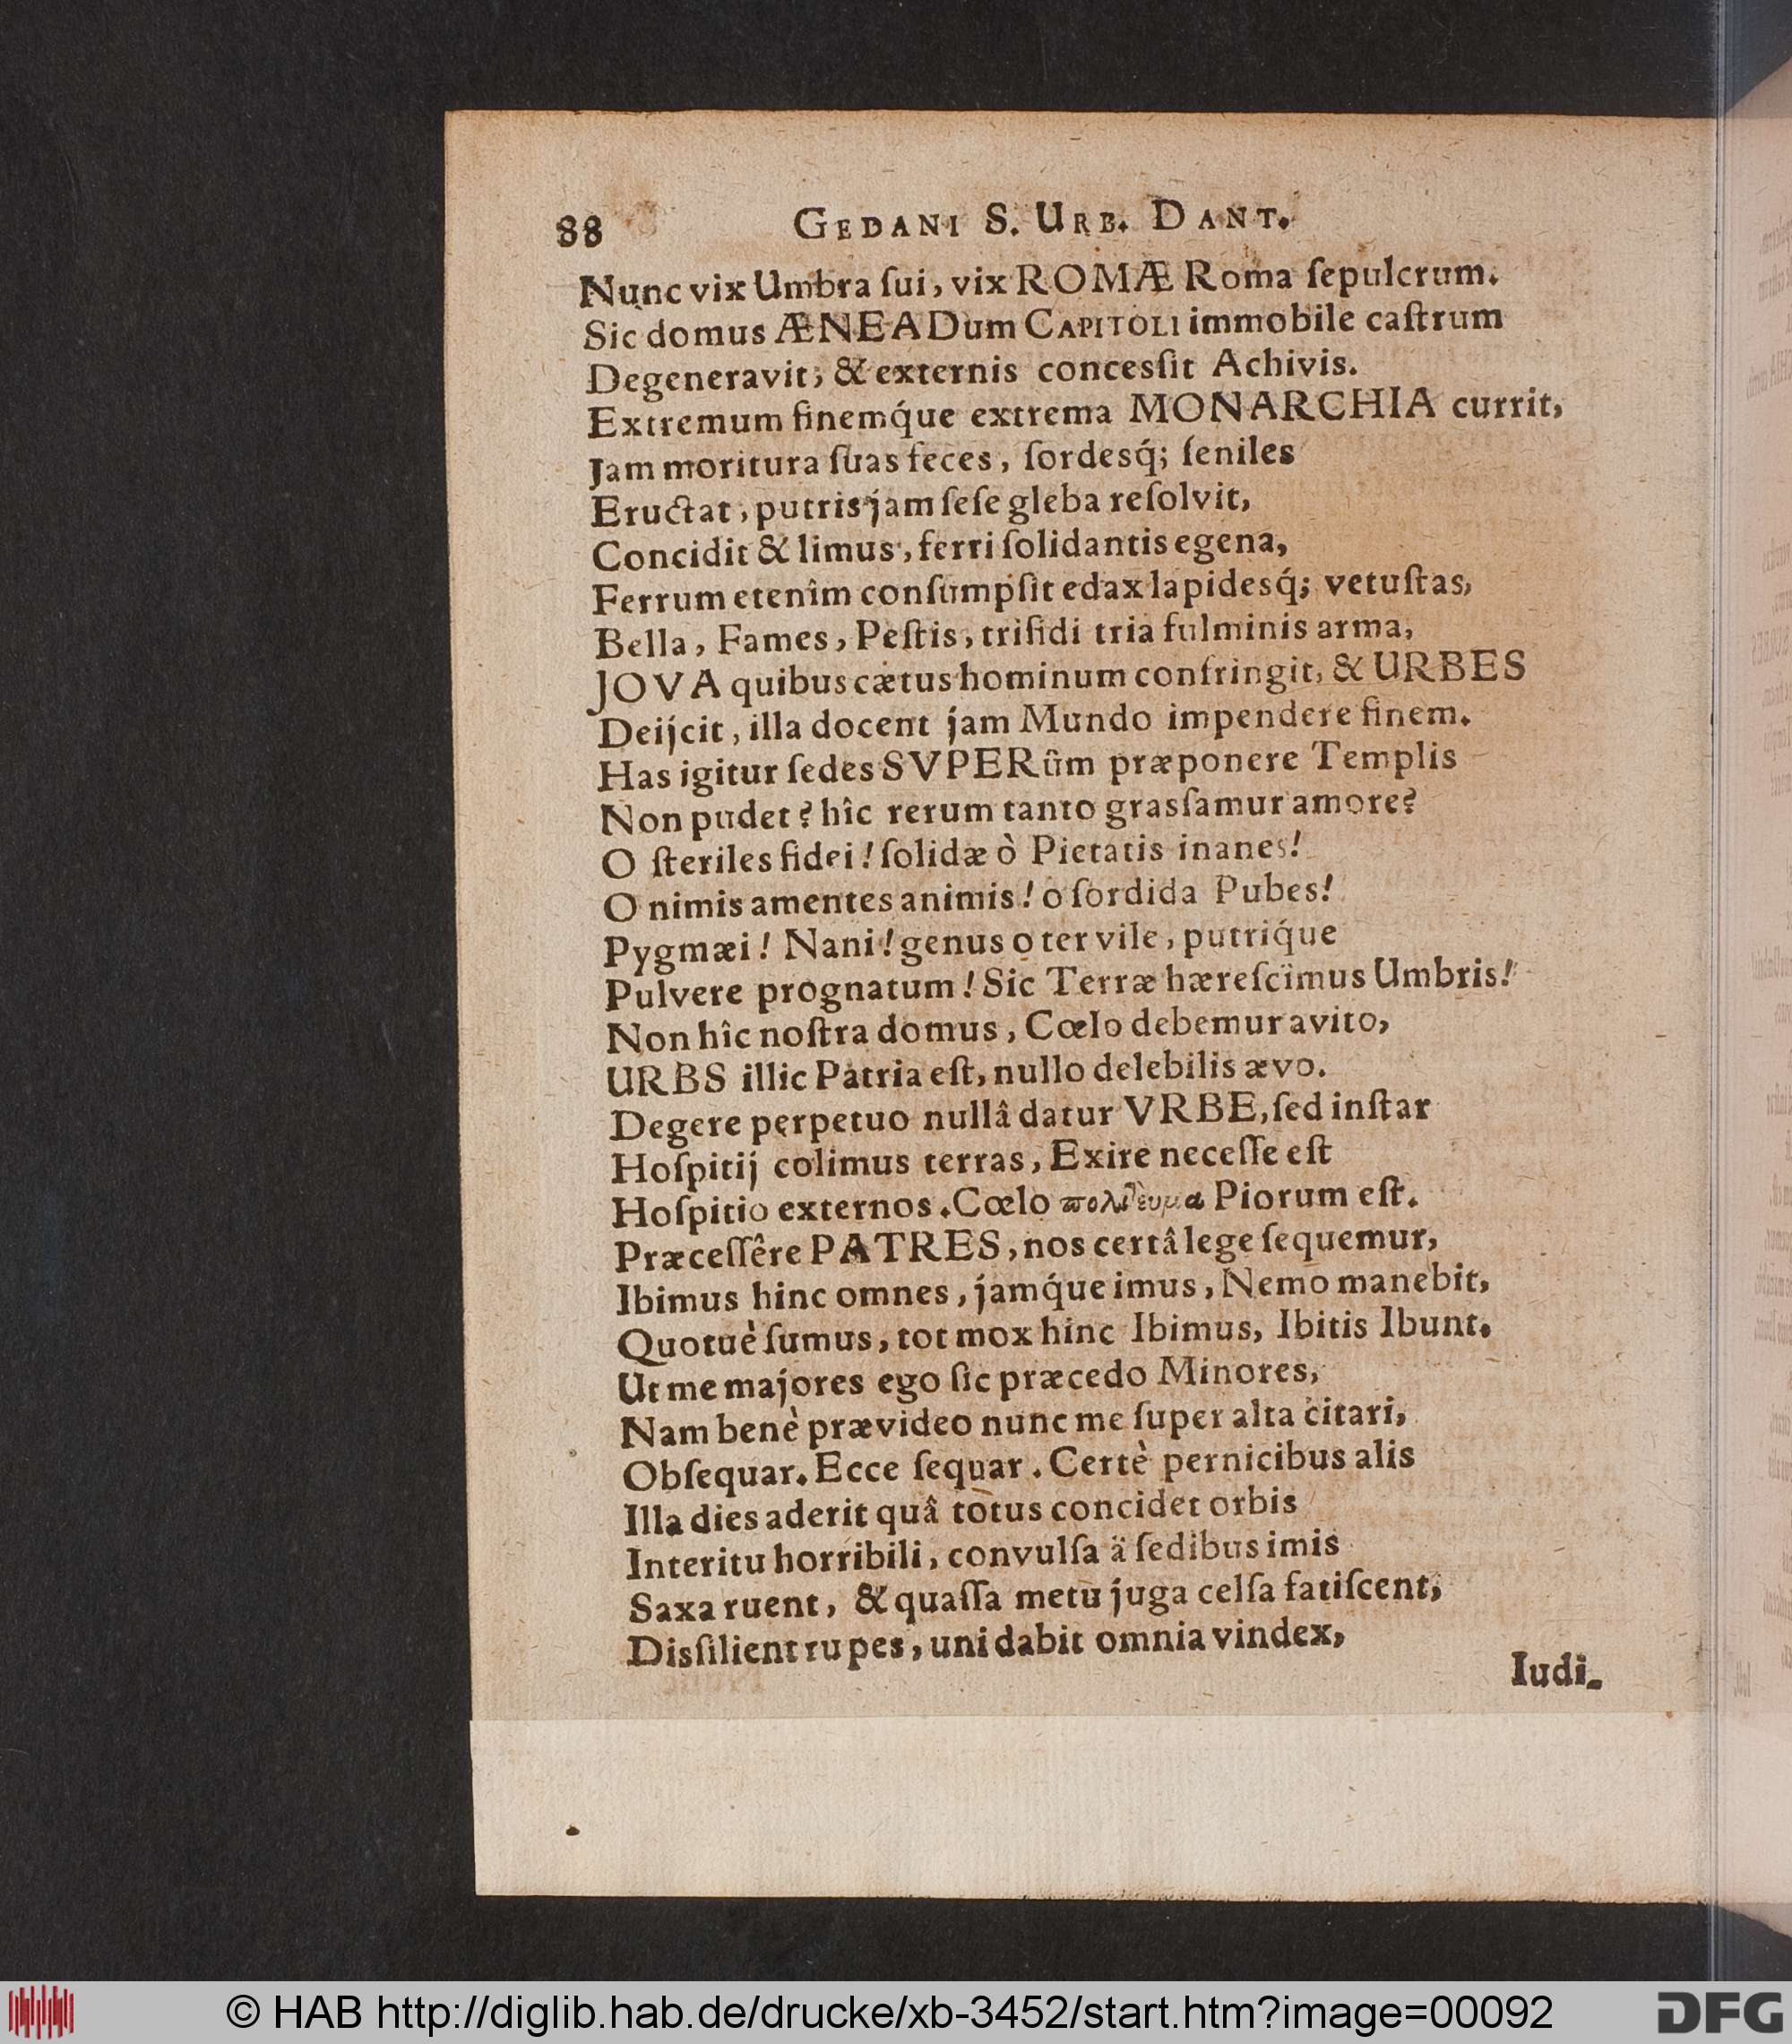 88 GEDANI S. URB. DANT.
Nunc vix Umbra ſui, vix ROMÆ Roma ſepulcrum.
Sic domus ÆNEADum CAPITOLI immobile caſtrum
Degeneravit, & externis conceſsit Achivis.
Extremum finemq́ue extrema MONARCHIA currit,
Jam moritura ſuas feces, ſordesq́; ſeniles
Eructat, putris jam ſeſe gleba reſolvit,
Concidit & limus, ferri ſolidantis egena,
Ferrum etenîm conſumpſit edax lapidesq́; vetuſtas,
Bella, Fames, Peſtis, trifidi tria fulminis arma,
JOVA quibus cætus hominum confringit, & URBES
Deijcit, illa docent jam Mundo impendere finem.
Has igitur ſedes SVPERûm præponere Templis
Non pudet? hîc rerum tanto grasſamur amore?
O ſteriles fidei! ſolidæ ò Pietatis inanes!
O nimis amentes animis! o ſordida Pubes!
Pygmæi! Nani! genus o ter vile, putriq́ue
Pulvere prognatum! Sic Terræ hæreſcimus Umbris!
Non hîc noſtra domus, Cœlo debemur avito,
URBS illic Patria eſt, nullo delebilis ævo.
Degere perpetuo nullâ datur VRBE, ſed inſtar
Hoſpitij colimus terras, Exire neceſſe eſt
Hoſpitio externos. Cœlo πολίτευμα Piorum eſt.
Præceſſêre PATRES, nos certâ lege ſequemur,
Ibimus hinc omnes, jamq́ue imus, Nemo manebit,
Quotuè ſumus, tot mox hinc Ibimus, Ibitis Ibunt.
Ut me majores ego ſic præcedo Minores,
Nam benè prævideo nunc me ſuper alta citari,
Obſequar. Ecce ſequar. Certè pernicibus alis
Illa dies aderit quâ totus concidet orbis
Interitu horribili, convulſa à ſedibus imis
Saxa ruent, & quaſſa metu juga celſa fatiſcent,
Disſilient rupes, uni dabit omnia vindex,
Iudi-
© HAB http://diglib.hab.de/drucke/xb-3452/start.htm?image=00092
DFG